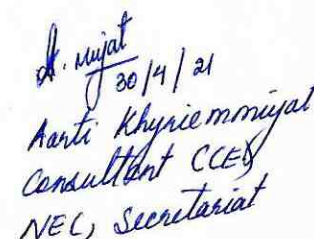 A. Mujat
30/4/21
Aarti Khyriemmujat
Consultant CCED
NEC, Secretariat